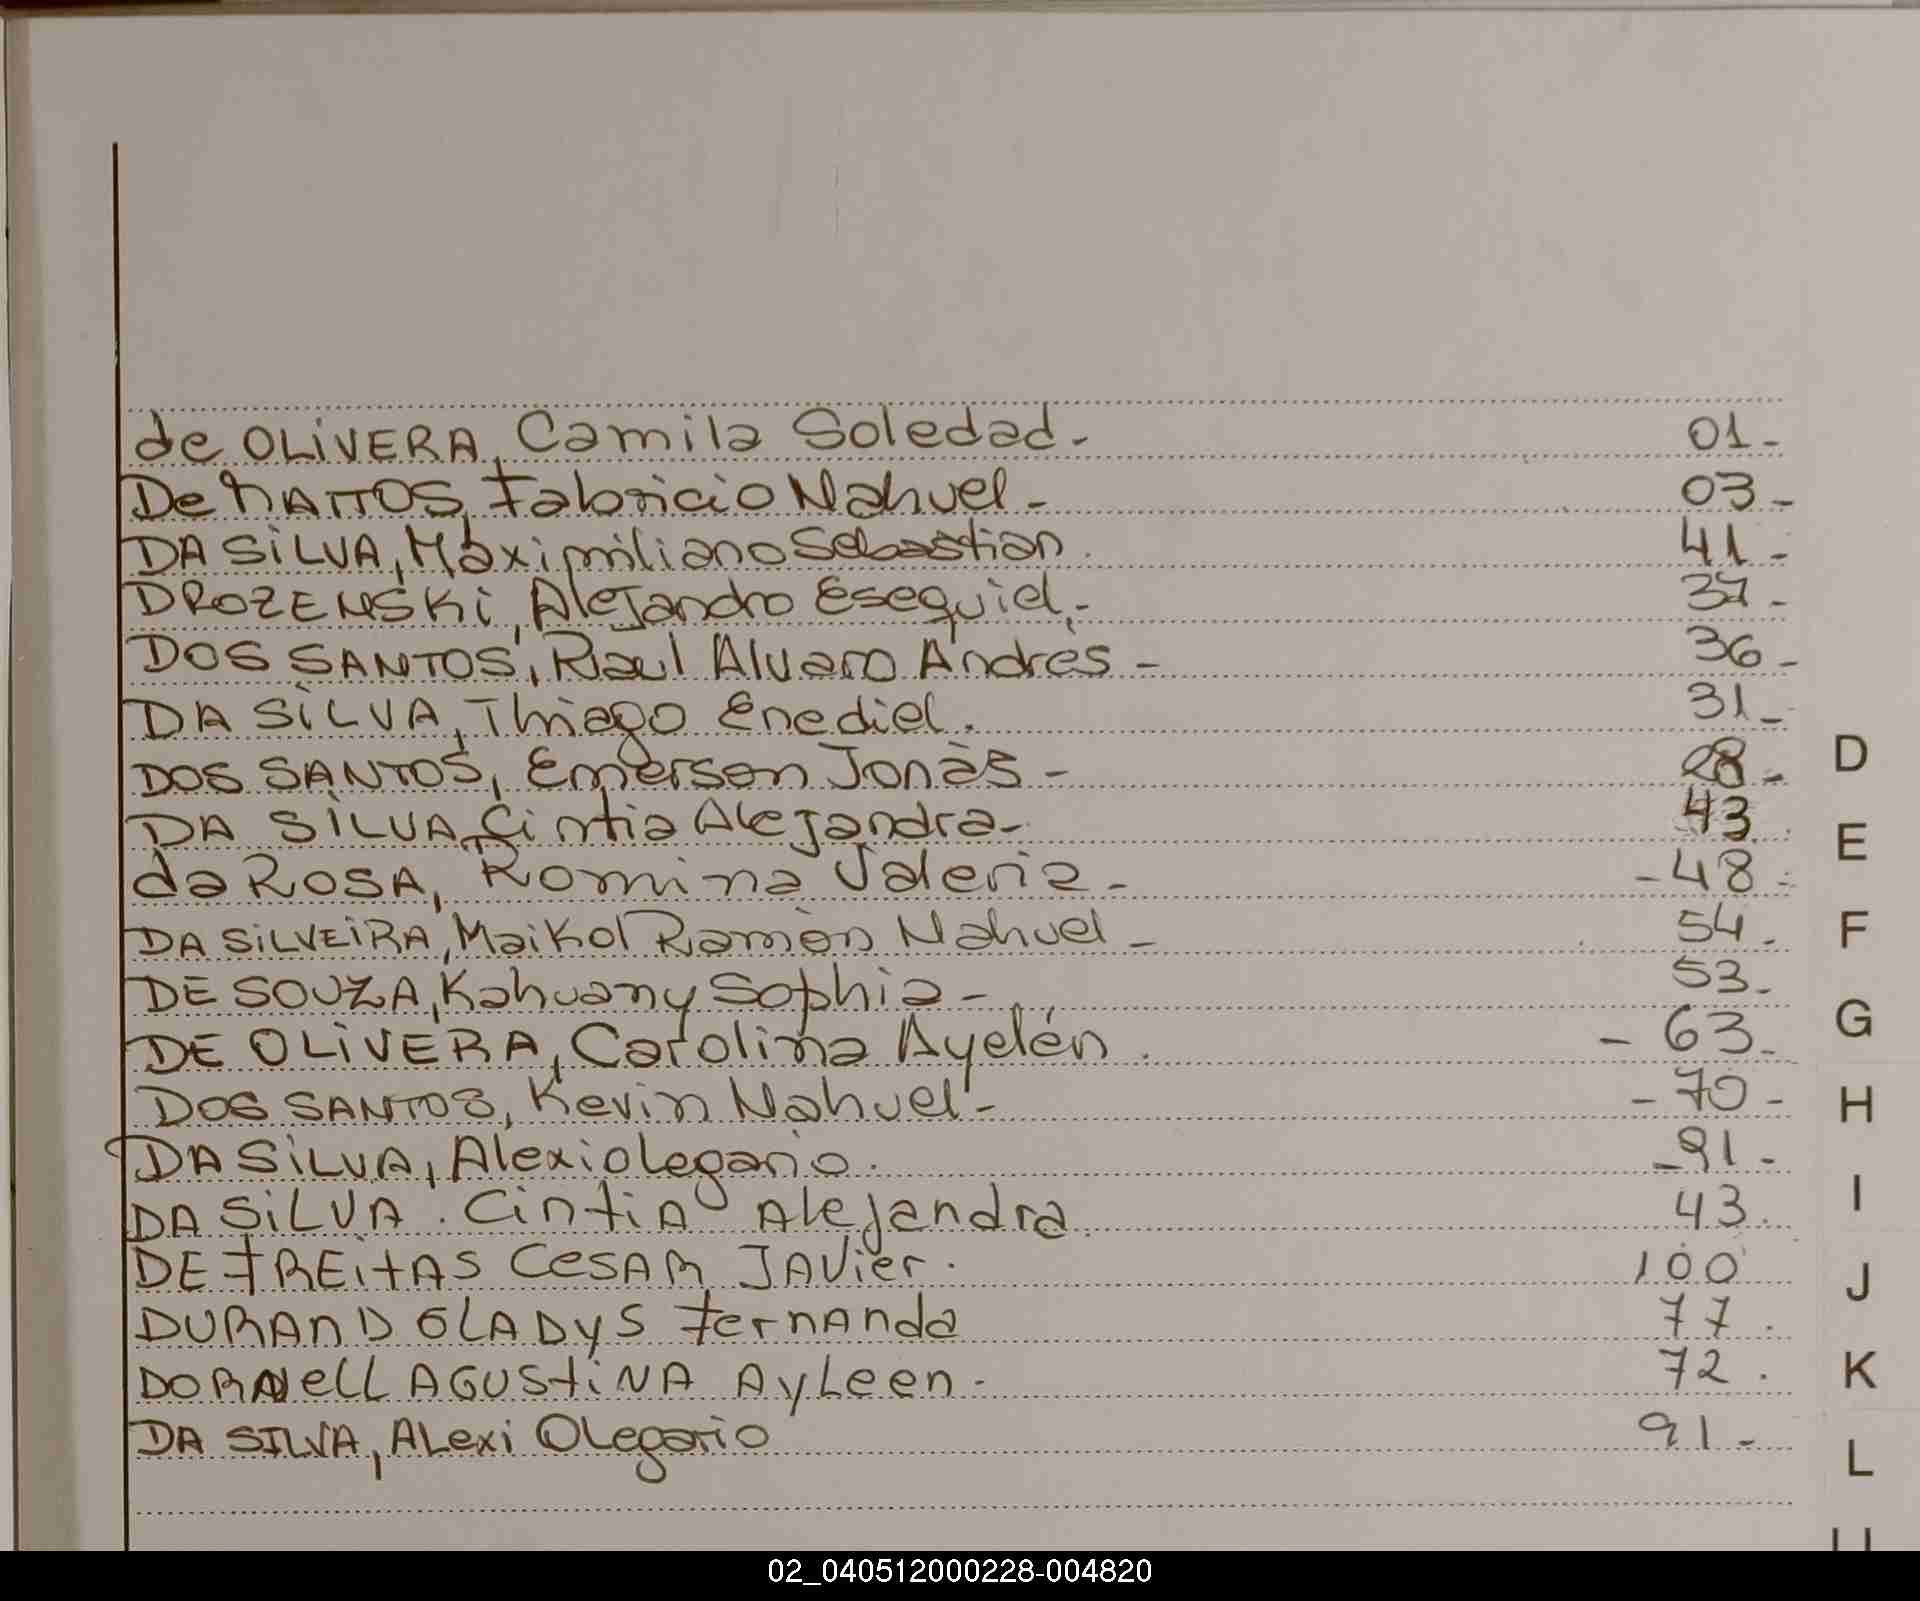 de OLIVERA, Camila Soledad- 01-
De MATTOS, Fabricio Nahuel- 03-
DA SILVA, Maximiliano Sebastian. 41-
DROZENSKI, Alejandro Esequiel.- 37-
DOS SANTOS, Raul Alvaro Andrés- 36-
DA SILVA, Thiago Enediel. 31-
DOS SANTOS, Emerson Jonàs- 28-
DA SILVA, Cintia Alejandra- 43
da ROSA, Romina Valeria- -48-
DA SILVEIRA, Maikol Ramòn Nahuel- 54-
DE SOUZA, Kahuany Sophia- 53-
DE OLIVERA, Carolina Ayelén. -63-
DOS SANTOS, Kevin Nahuel- -70-
DA SILVA, Alexi olegario. -91-
DA SILVA. Cintia Alejandra. 43.
DE FREITAS CESAR JAVier. 100
DURAND GLADYS FernAnda 77.
DORNELL AGUSTINA AyLeen- 72.
DA SILVA, ALexi OLegario 91-
D
E
F
G
H
I
J
K
L
02_040512000228-004820